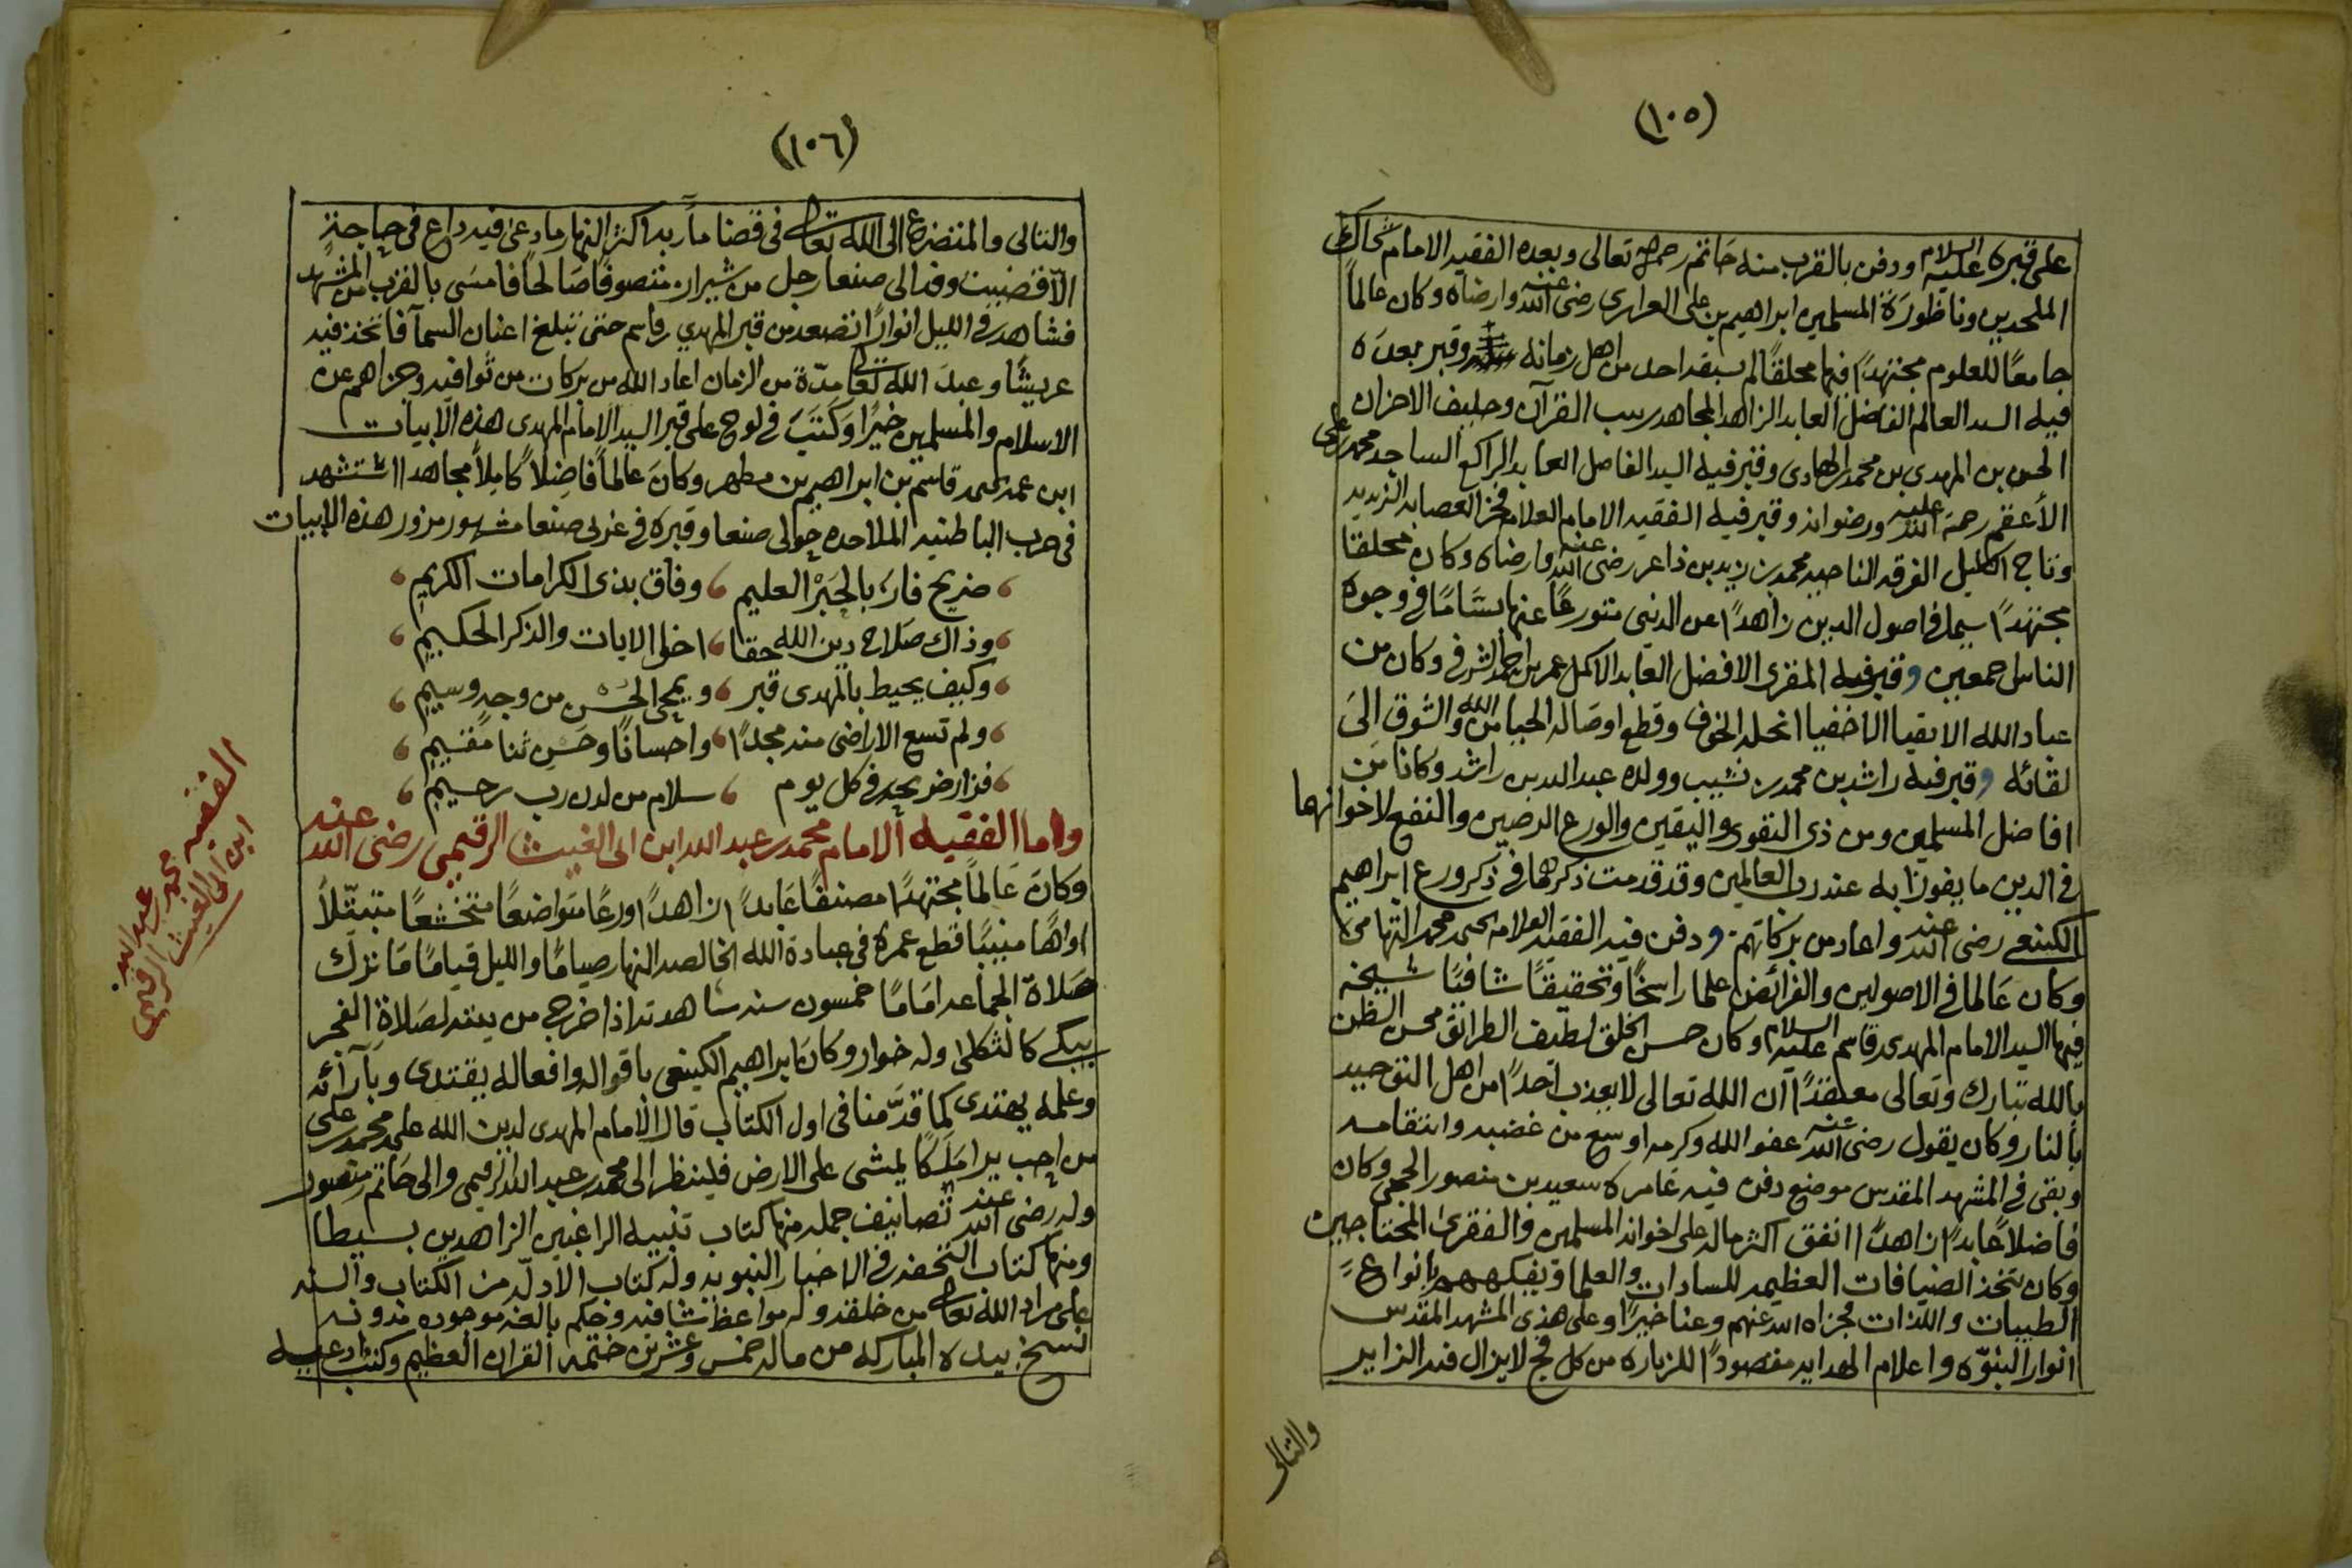 (١٠٥)
على قبره عليه السلام ودفن بالقرب منه حاتم رحمه الله تعالى وبعده الفقيه الامام شحاك
الملحدين وناظورة المسلمين ابراهيم بن علي العراري رضي الله عنه وارضاه وكان عالماً
جامعًا للعلوم مجتهدًا فيها محلقًا لم يسبقه احد من اهل زمانه وقبر بعده
فيه السيد العالم الفاضل العابد الزاهد المجاهد ربيب القرآن وحليف الاحزان
الحسن بن المهدي بن محمد الهادي وقبر فيه السيد الفاضل العابد الراكع الساجد محمد بن علي
الأعقم رحمة الله عليه ورضوانه وقبر فيه الفقيه الامام العلامه فخر العصابه الزيديه
وتاج اكاليل الفرقه الناجيه محمد بن زيد بن ذاعر رضي الله عنه وارضاه وكان محلقا
مجتهدًا سيما في اصول الدين زاهدًا عن الدنيى متورعًا عنها بسّامًا في وجوه
الناس اجمعين وقبر فيه المقرى الافضل العابد الاكمل عمر بن احمد الشرفي وكان من
عباد الله الاتقيا الاخفيا انحله الخوف وقطع اوصاله الحيا من الله والشوق الى
لقائه وقبر فيه راشد بن محمد بن نشيب وولده عبد الله بن راشد وكانا من
افاضل المسلمين ومن ذي التقوى واليقين والورع الرصين والنفع لاخوانهما
في الدين ما يفوزا به عند رب العالمين وقد قدمت ذكرهما في ذكر ورع ابراهيم
الكينعي رضي الله عنه واعاد من بركاتهم ودفن فيه الفقيه العلامه يحيى محمد التهامي
وكان عالما في الاصولين والفرائض علما راسخًا وتحقيقًا شافيًا شيخه
فيها السيد الامام المهدي قاسم عليه السلام وكان حسن الخلق لطيف الطرائق محسن الظن
بالله تبارك وتعالى معتقدًا ان الله تعالى لا يعذب احدًا من اهل التوحيد
بالنار وكان يقول رضي الله عنه عفو الله وكرمه اوسع من غضبه وانتقامه
وبقى في المشهد المقدس موضع دفن فيه عامره سعيد بن منصور الحجي وكان
فاضلاً عابدًا زاهدًا انفق اكثر ماله على اخوانه المسلمين والفقرى المحتاجين
وكان يتخذ الضيافات العظيمه للسادات والعلما ويفكههم بانواع
الطيبات واللذات فجزاه الله عنهم وعنا خيرًا وعلى هذى المشهد المقدس
انوار النبوّه واعلام الهدايه مقصودًا للزياره من كل فج لا يزال فيه الزاير
والتالى
(١٠٦)
والتالى والمتضرع الى الله تعالى في قضا مآربه اكثر النهار وما دعى فيه داع في حاجة
الّا قضيت وفد الى صنعا رجل من شيراز متصوفًا صَالحًا فامسَى بالقرب من المشهد
فشاهد في الليل انوارًا تصعد من قبر المهدي قاسم حتى تبلغ اعنان السمآ فاتخذ فيه
عريشًا وعبد الله تعالى مدّة من الزمان اعاد الله من بركات من ثوا فيه وجزاهم عن
الاسلام والمسلمين خيرًا وَكَتَبَ في لوح على قبر السيد الامام المهدى هذه الابيات
ابن عمه يحيى قاسم بن ابراهيم بن مطهر وكان عالماً فاضِلاً كامِلاً مجاهدا استشهد
في حرب الباطنيه الملاحده حوالى صنعا وقبره في غربى صنعا مشهور مزور هذه الابيات
ضريح فاز بالحَبْر العليم وفاق بذى الكرامات الكريم
وذاك صَلاح دين الله حقا اخو الايات والذكر الحكيم
وكيف يحيط بالمهدى قبر ويمحى الحسن من وجه وسيم
ولم تسع الاراضى منه مجدًا واحسانًا وحسن ثنا مقيم
فزار ضريحه في كل يوم سلام من لدن رب رحيم
واما الفقيه الامام محمد بن عبد الله ابن ابى الغيث الرقيمى رضى الله عنه
وكان عَالماً مجتهدًا مصنفًا عَابدًا زاهدًا ورعًا متواضعًا متخشعًا متبتّلاً
اواهًا منيبًا قطع عمره في عبادة الله الخالصه النهار صيامًا والليل قيامًا مَا ترك
صَلاة الجماعه امَامًا خمسون سنه شاهدته اذا خرج من بيته لصَلاة الفجر
يبكى كالثكلى وله خوار وكان ابراهيم الكينعى باقواله وافعاله يقتدى وبآرائه
وعلمه يهتدى كما قدّمنا في اول الكتاب قال الامام المهدى لدين الله على محمد بن على
من احب يرا مَلَكًا يمشى على الارض فلينظر الى محمد بن عبد الله الرقيمى والى حَاتم بن منصور
وله رضي الله عنه تصانيف جمله منها كتاب تنبيه الراغبين الزاهدين بسيطا
ومنها كتاب التحفه في الاخبار النبويه وله كتاب الادلّه من الكتاب والسنه
على مراد الله تعالى من خلقه وله مواعظ شافيه وحكم بالغه موجوده مدونه
نسخ بيده المباركه من ماله خمس وعشرين ختمه القران العظيم وكتب ادعيه
الفقيه محمد بن عبد الله
ابن ابى الغيث الرقيمى